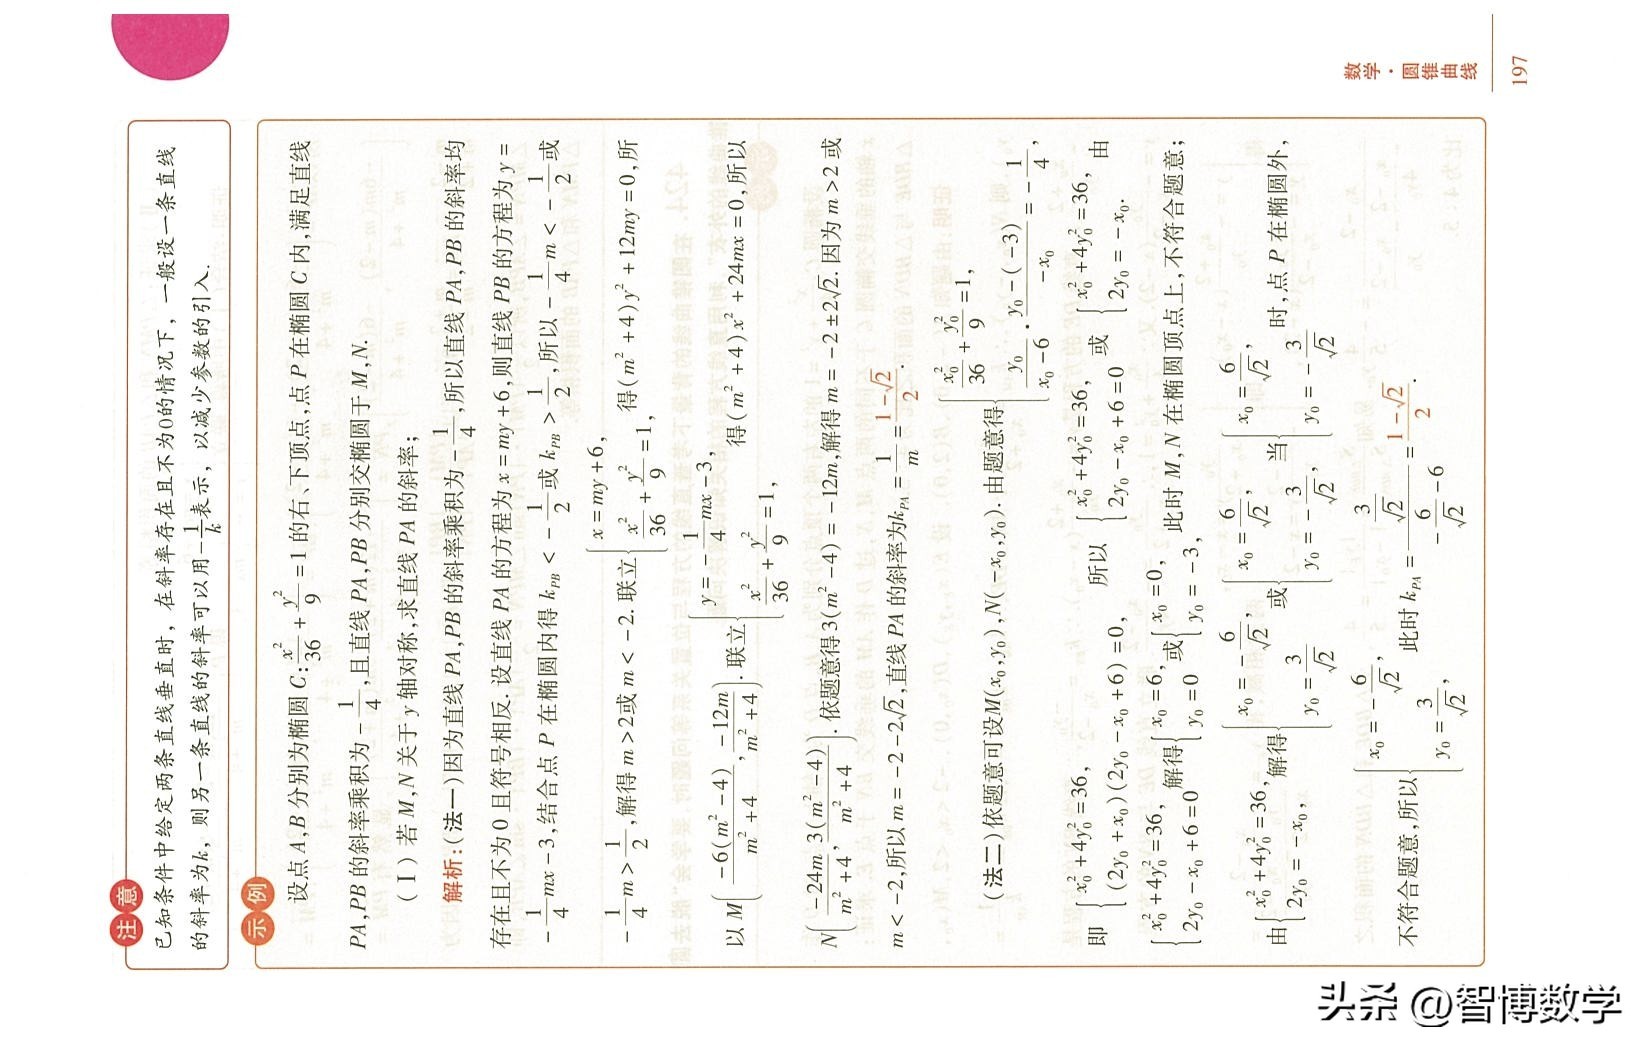 注意
已知条件中给定两条直线垂直时，在斜率存在且不为0的情况下，一般设一条直线
的斜率为k，则另一条直线的斜率可以用-1/k表示，以减少参数的引入.
示例
设点A,B分别为椭圆C:x²/36+y²/9=1的右、下顶点,点P在椭圆C内,满足直线
PA,PB的斜率乘积为-1/4,且直线PA,PB分别交椭圆于M,N.
(Ⅰ)若M,N关于y轴对称,求直线PA的斜率;
解析:(法一)因为直线PA,PB的斜率乘积为-1/4,所以直线PA,PB的斜率均
存在且不为0且符号相反.设直线PA的方程为x=my+6,则直线PB的方程为y=
-1/4mx-3,结合点P在椭圆内得k_PB<-1/2或k_PB>1/2,所以-1/4m<-1/2或
-1/4m>1/2,解得m>2或m<-2.联立{x=my+6, x²/36+y²/9=1,得(m²+4)y²+12my=0,所
以M(-6(m²-4)/(m²+4),-12m/(m²+4)).联立{y=-1/4mx-3, x²/36+y²/9=1,得(m²+4)x²+24mx=0,所以
N(-24m/(m²+4),3(m²-4)/(m²+4)).依题意得3(m²-4)=-12m,解得m=-2±2√2.因为m>2或
m<-2,所以m=-2-2√2,直线PA的斜率为k_PA=1/m=(1-√2)/2.
(法二)依题意可设M(x₀,y₀),N(-x₀,y₀).由题意得{x₀²/36+y₀²/9=1, y₀/(x₀-6)·(y₀-(-3))/(-x₀)=-1/4,
即{x₀²+4y₀²=36, (2y₀+x₀)(2y₀-x₀+6)=0,所以{x₀²+4y₀²=36, 2y₀-x₀+6=0或{x₀²+4y₀²=36, 2y₀=-x₀.由
{x₀²+4y₀²=36, 2y₀-x₀+6=0解得{x₀=6, y₀=0或{x₀=0, y₀=-3,此时M,N在椭圆顶点上,不符合题意;
由{x₀²+4y₀²=36, 2y₀=-x₀,解得{x₀=-6/√2, y₀=3/√2或{x₀=6/√2, y₀=-3/√2,当{x₀=6/√2, y₀=-3/√2时,点P在椭圆外,
不符合题意,所以{x₀=-6/√2, y₀=3/√2,此时k_PA=(3/√2)/(-6/√2-6)=(1-√2)/2.
数学·圆锥曲线
197
头条 @智博数学